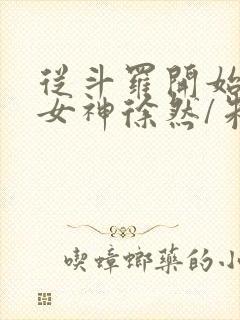 從斗羅開始
女神徐然/朱
喫蟑螂藥的小